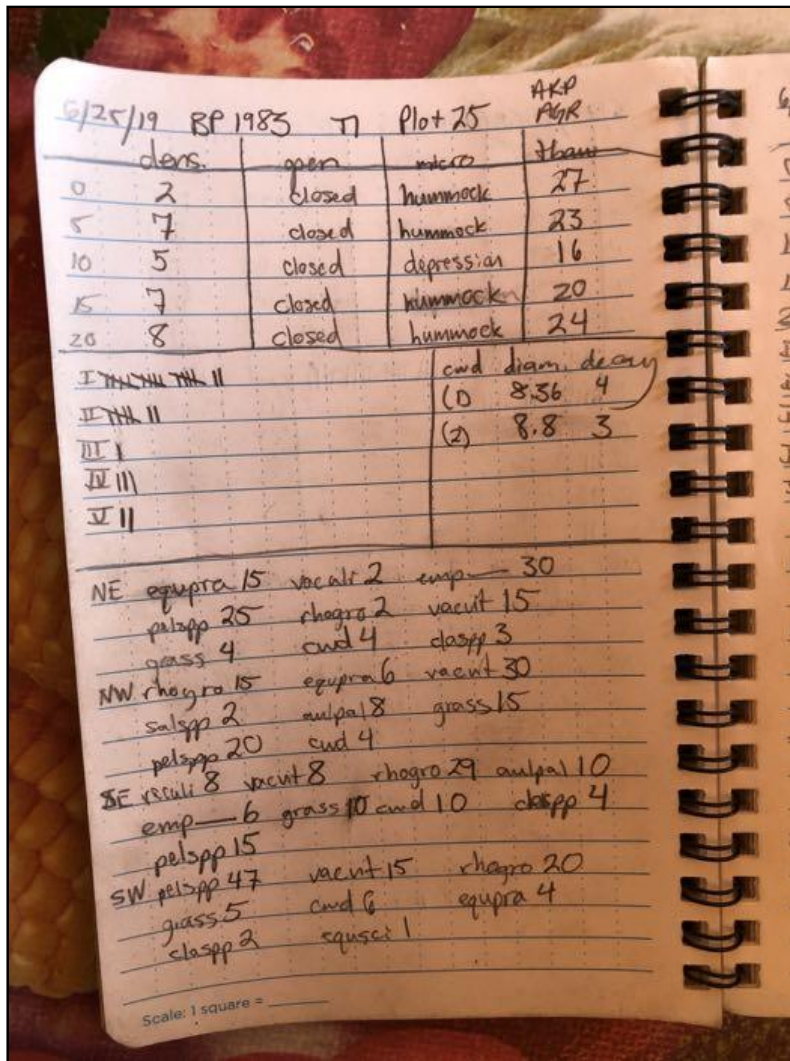 6/25/19 BP 1983 Π Plot 25 AKP
AGR
dens. open micro thaw
0 2 closed hummock 27
5 7 closed hummock 23
10 5 closed depression 16
15 7 closed hummock 20
20 8 closed hummock 24
I 𝍸 𝍸 𝍸 II cwd diam. decay
II 𝍸 II (1) 8.36 4
III I (2) 8.8 3
IV III
V II
NE equpra 15 vacali 2 emp— 30
pelspp 25 rhogro 2 vacvit 15
grass 4 cwd 4 claspp 3
NW rhogro 15 equpra 6 vacvit 30
salspp 2 aulpal 8 grass 15
pelspp 20 cwd 4
SE vaculi 8 vacvit 8 rhogro 29 aulpal 10
emp— 6 grass 10 cwd 10 claspp 4
pelspp 15
SW pelspp 47 vacvit 15 rhogro 20
grass 5 cwd 6 equpra 4
claspp 2 equsci 1
Scale: 1 square = ______